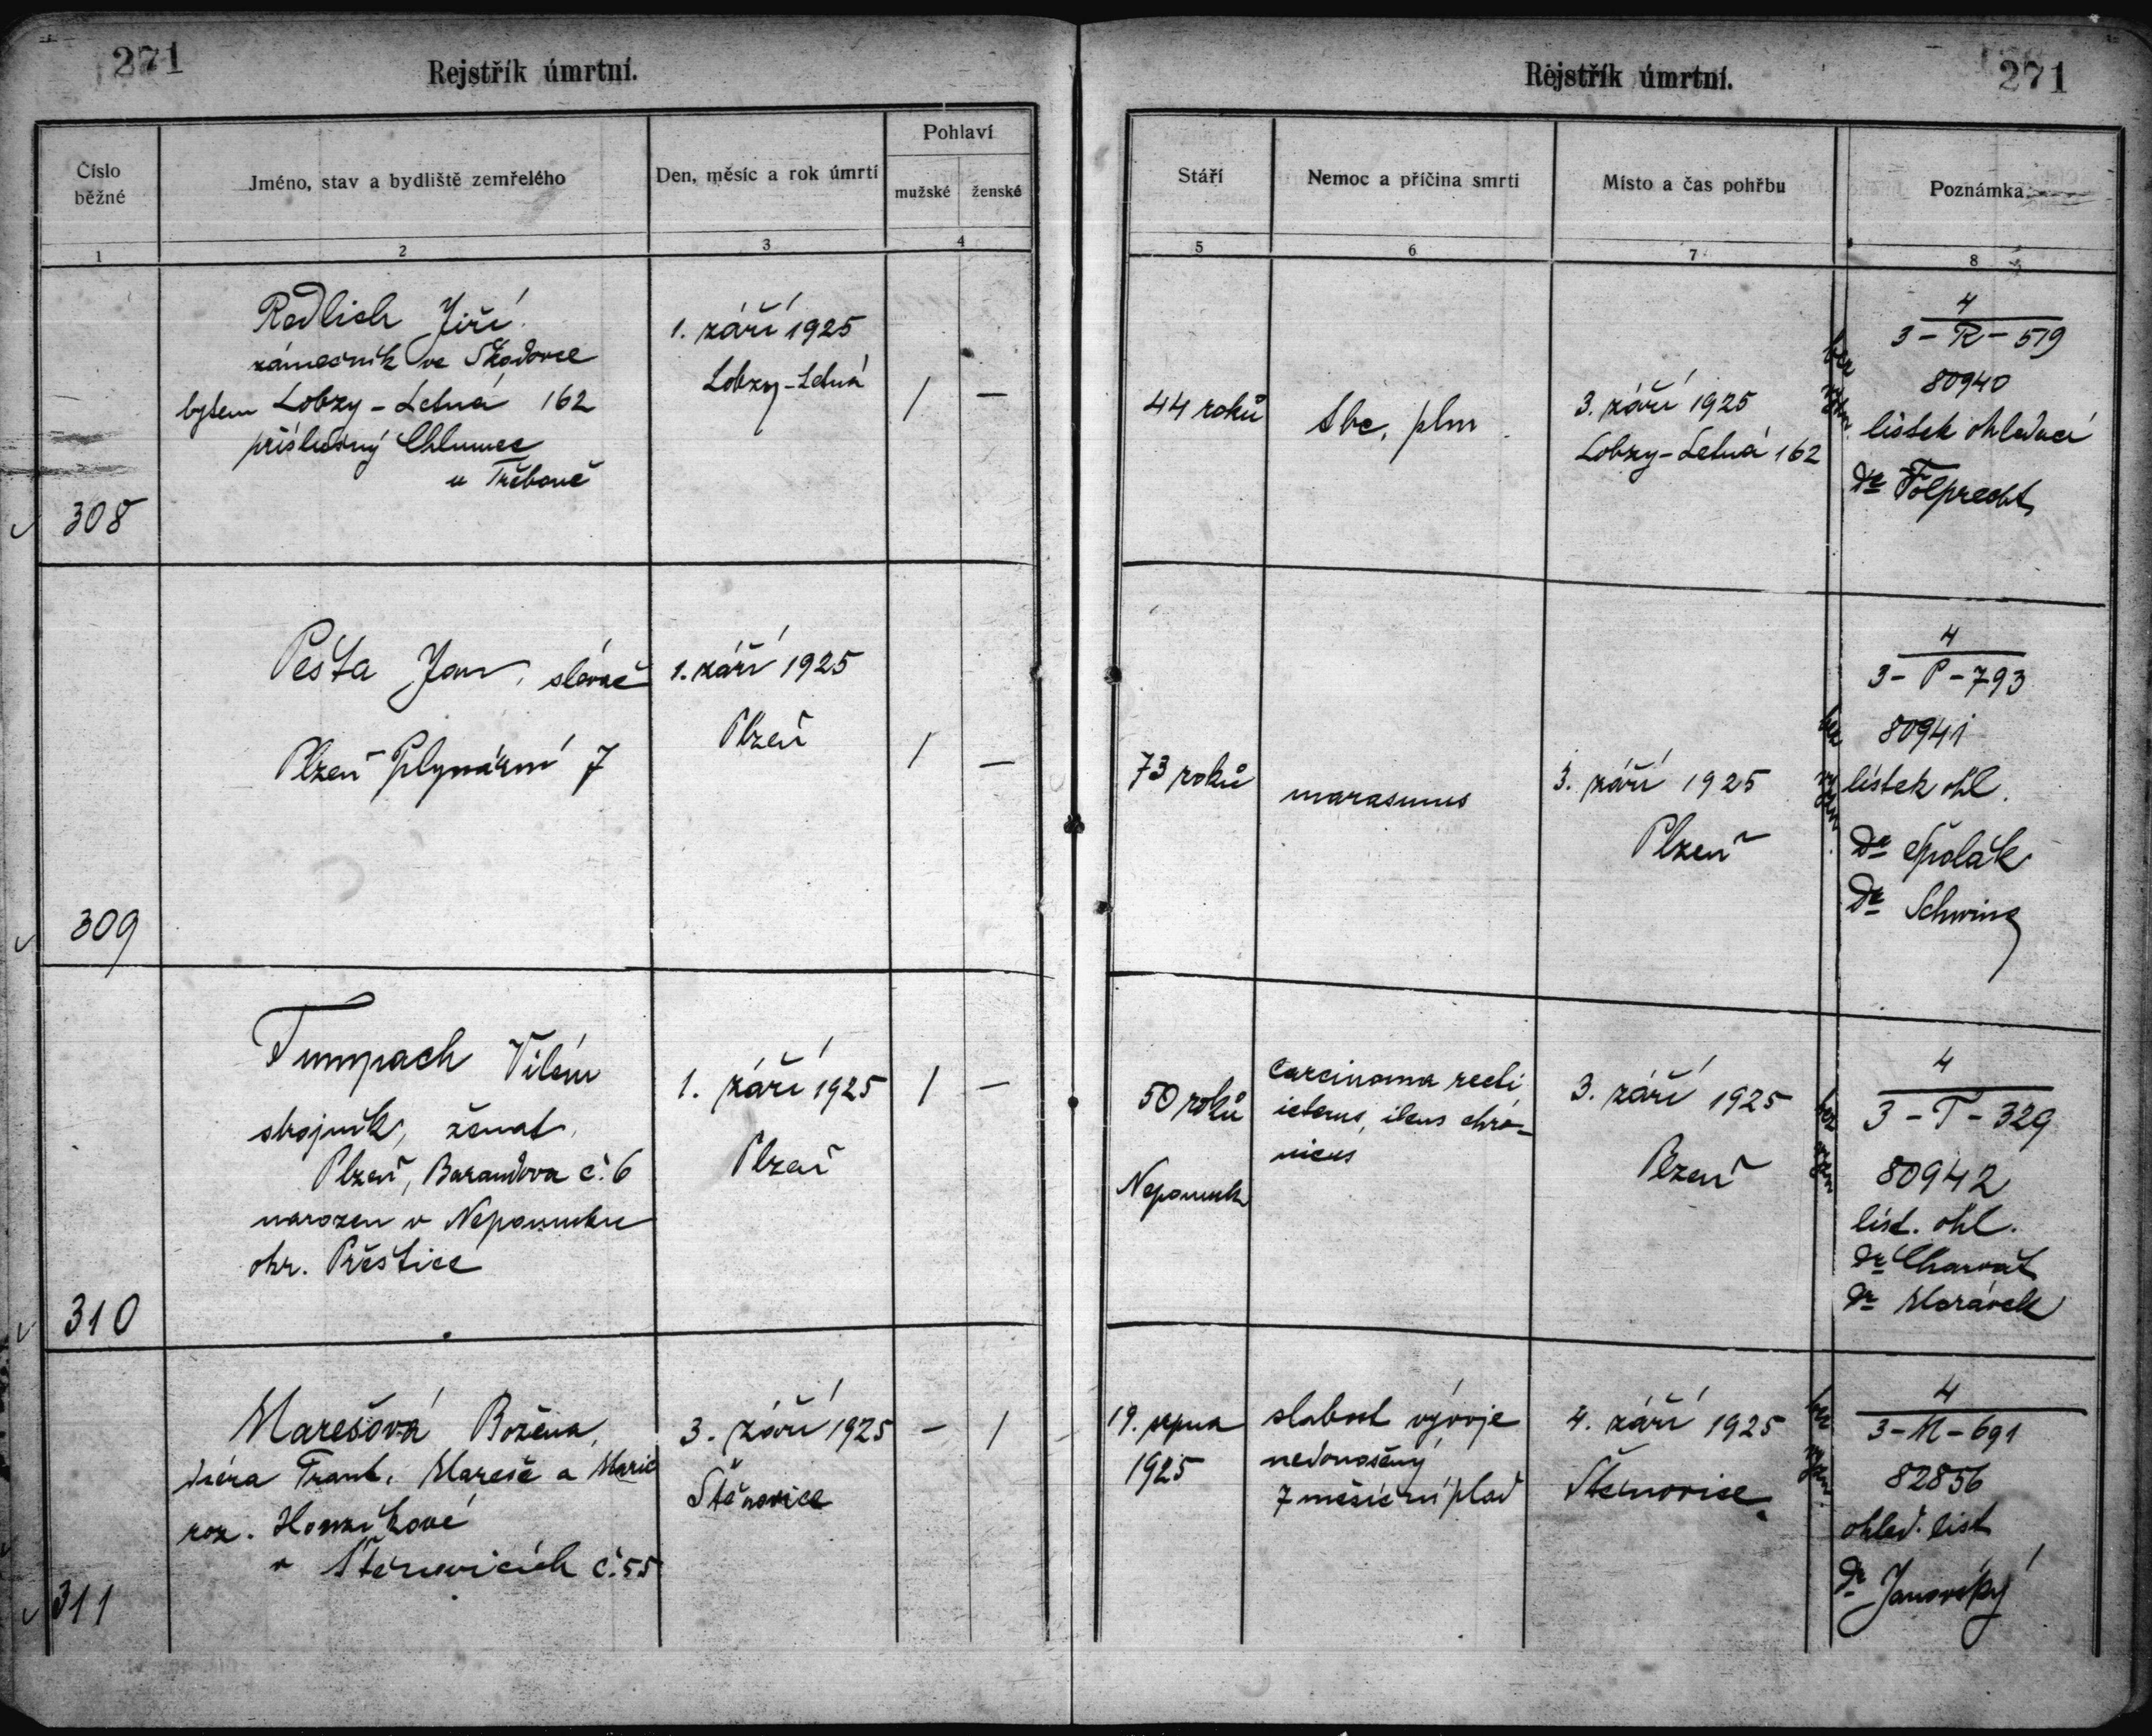 271
Rejstřík úmrtní.
Číslo běžné
Jméno, stav a bydliště zemřelého
Den, měsíc a rok úmrtí
Pohlaví
mužské
ženské
1
2
3
4
308
Redlich Jiří
zámečník ve Škodovce
bytem Lobzy-Letná 162
příslušný Chlumec
u Třeboně
1. září 1925
Lobzy-Letná
/
—
309
Pešta Jan, slévač
Plzeň Plynární 7
1. září 1925
Plzeň
/
—
310
Tumpach Vilém
strojník, ženat,
Plzeň, Barandova č. 6
narozen v Nepomuku
okr. Přeštice
1. září 1925
Plzeň
/
—
311
Marešová Božena,
dcera Frant. Mareše a Marie
roz. Honzíkové
v Štěnovicích č. 55
3. září 1925
Štěnovice
—
/
Rejstřík úmrtní.
271
Stáří
Nemoc a příčina smrti
Místo a čas pohřbu
Poznámka
5
6
7
8
44 roků
tbc. plm
3. září 1925
Lobzy-Letná 162
4
3-R-519
80940
lístek ohledací
Dr Folprecht
73 roků
marasmus
3. září 1925
Plzeň
4
3-P-793
80941
lístek ohl.
Dr Špolák
Dr Schwing
50 roků
Nepomuk
carcinoma recti
icterus, ileus chro-
nicus
3. září 1925
Plzeň
4
3-T-329
80942
líst. ohl.
Dr Charvát
Dr Morávek
19. srpna
1925
slabost vývoje
nedonošený
7 měsíční plod
4. září 1925
Štěnovice
4
3-M-691
82856
ohled. list
Dr Janovský